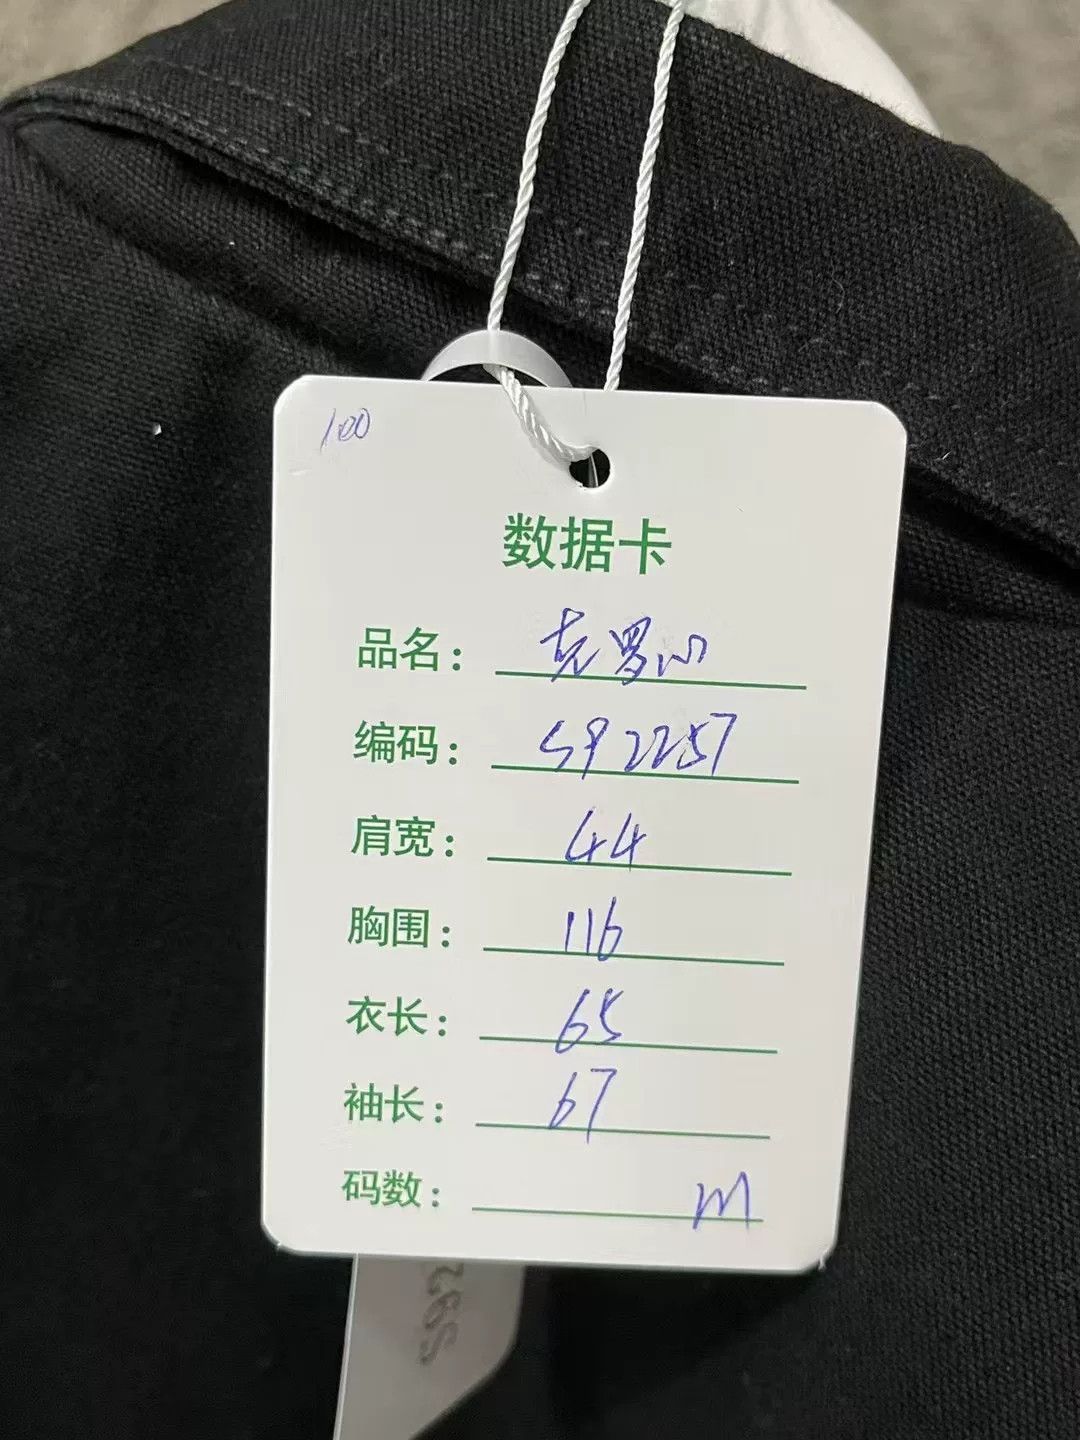 100
数据卡
品名：克罗心
编码：S92257
肩宽：44
胸围：116
衣长：65
袖长：67
码数：M